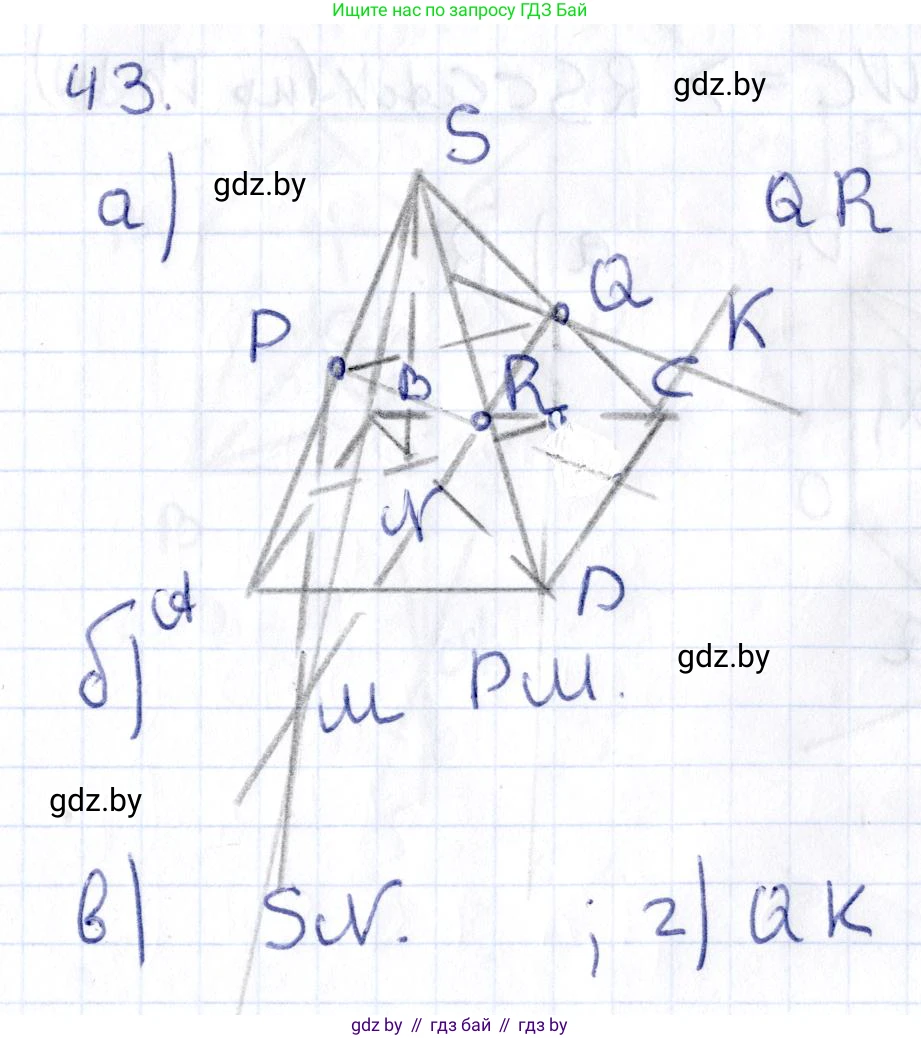 Ищите нас по запросу ГДЗ Бай
43.
gdz.by
S
а)
gdz.by
QR
Q
P
K
B
R
C
N
A
D
б)
M
PM.
gdz.by
gdz.by
в) SN. ; г) QK
gdz.by // гдз бай // гдз by